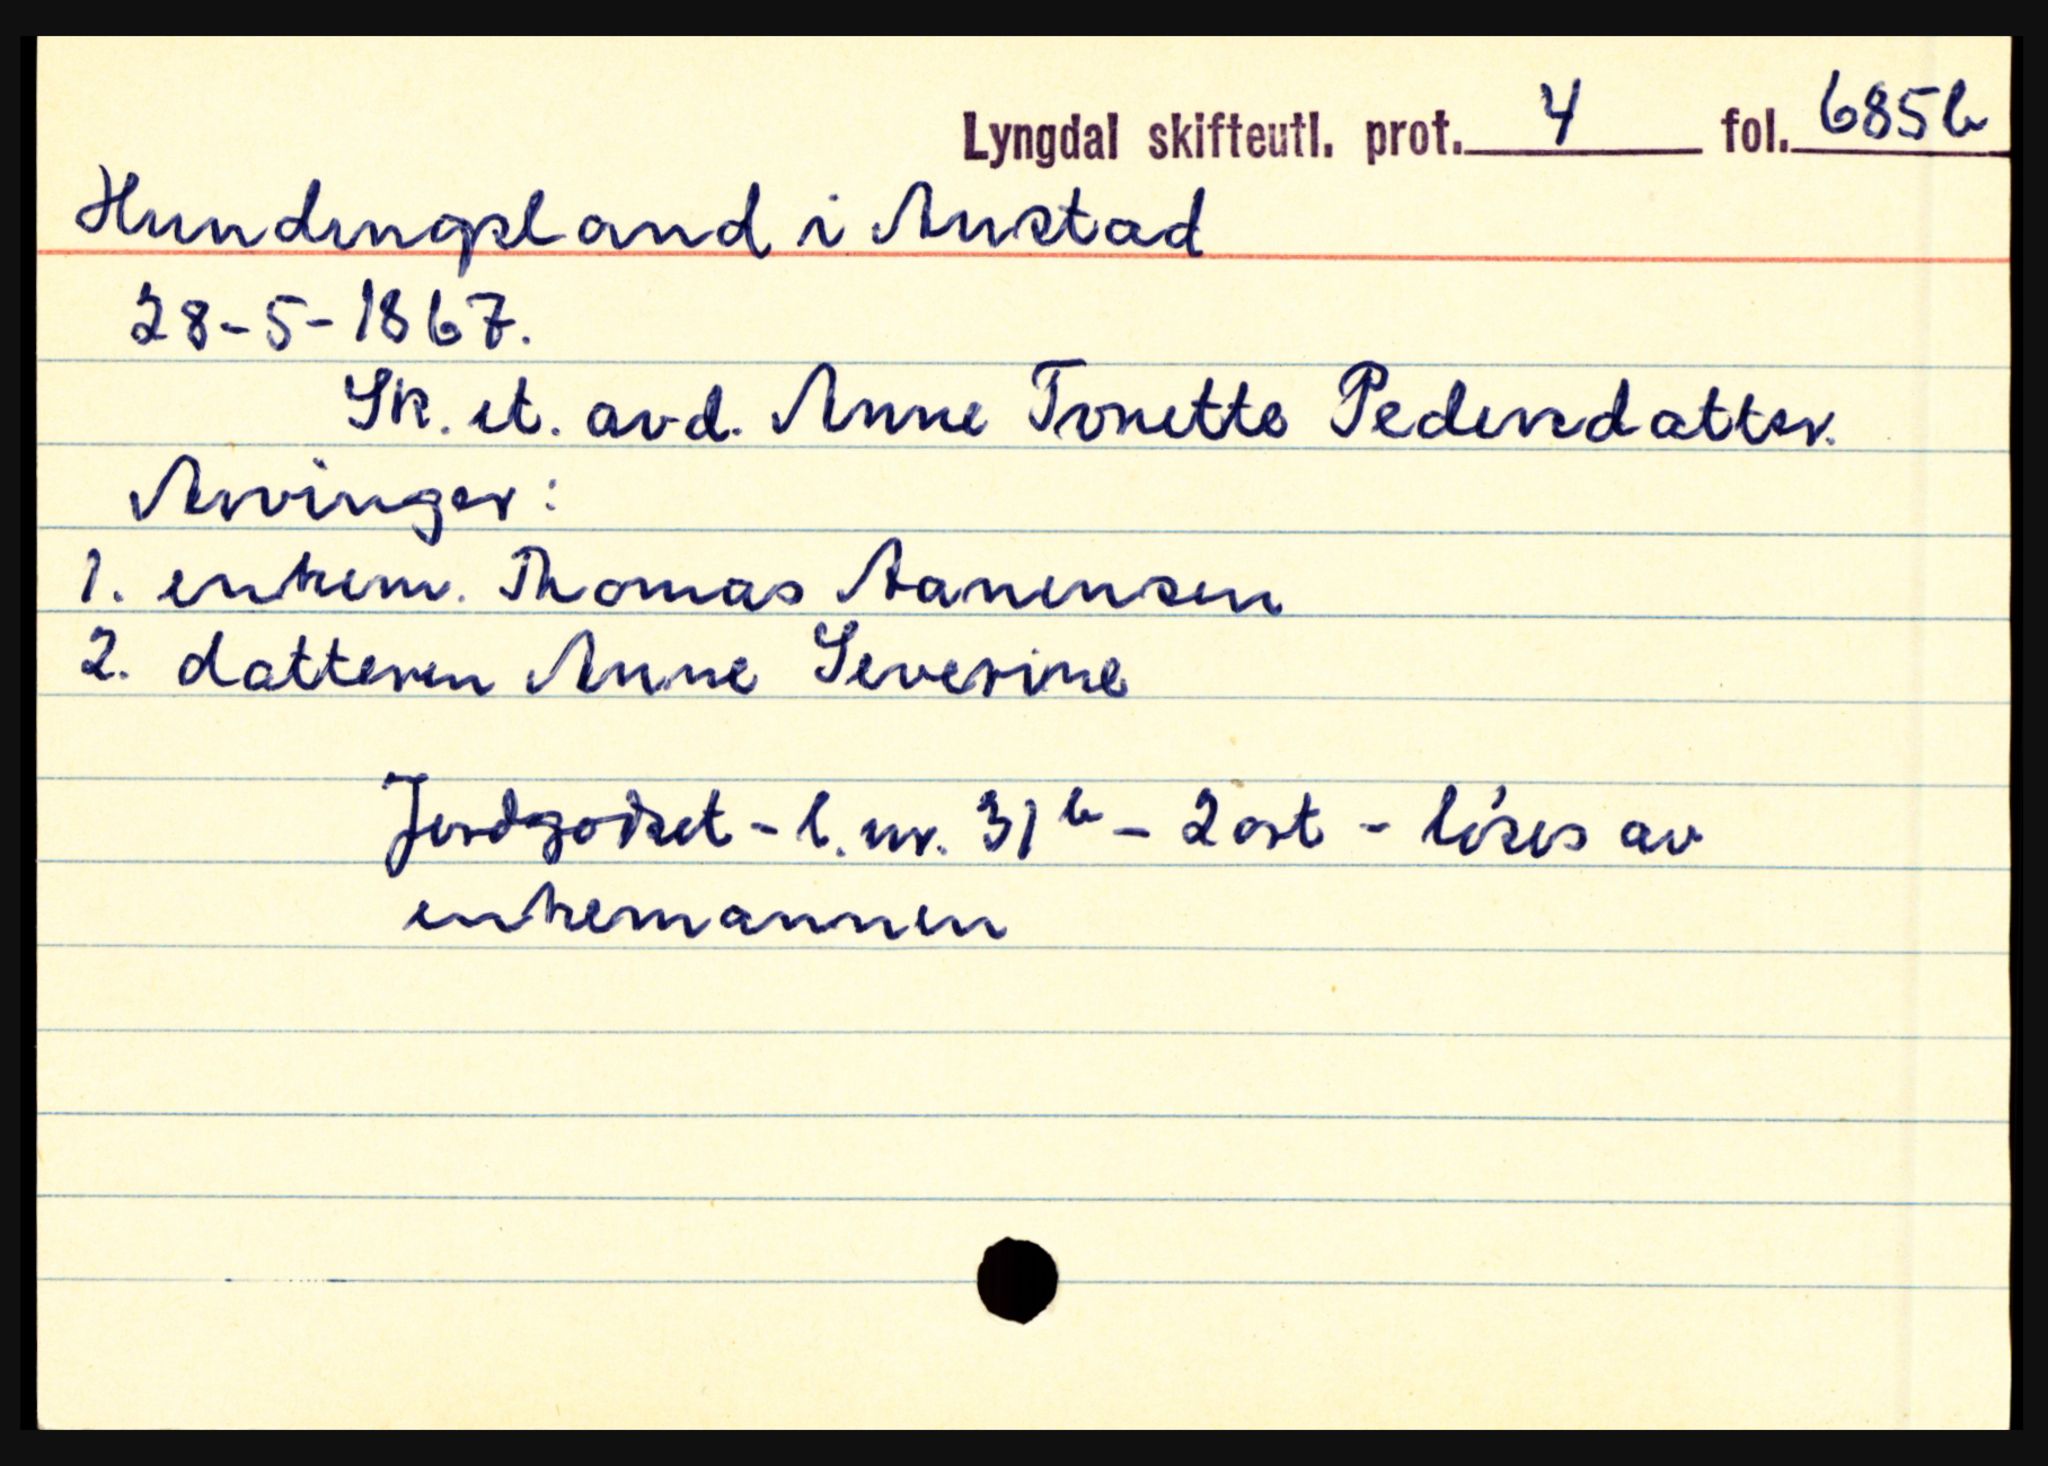 Lyngdal skifteutl. prot. 4 fol. 685b
Hundingsland i Austad
28-5-1867.
Sk. et. avd. Anne Tonette Pedersdatter.
Arvinger:
1. enkem. Thomas Aanensen
2. datteren Anne Severine
Jordgodset - l. nr. 31b - 2 ort - löses av
enkemannen